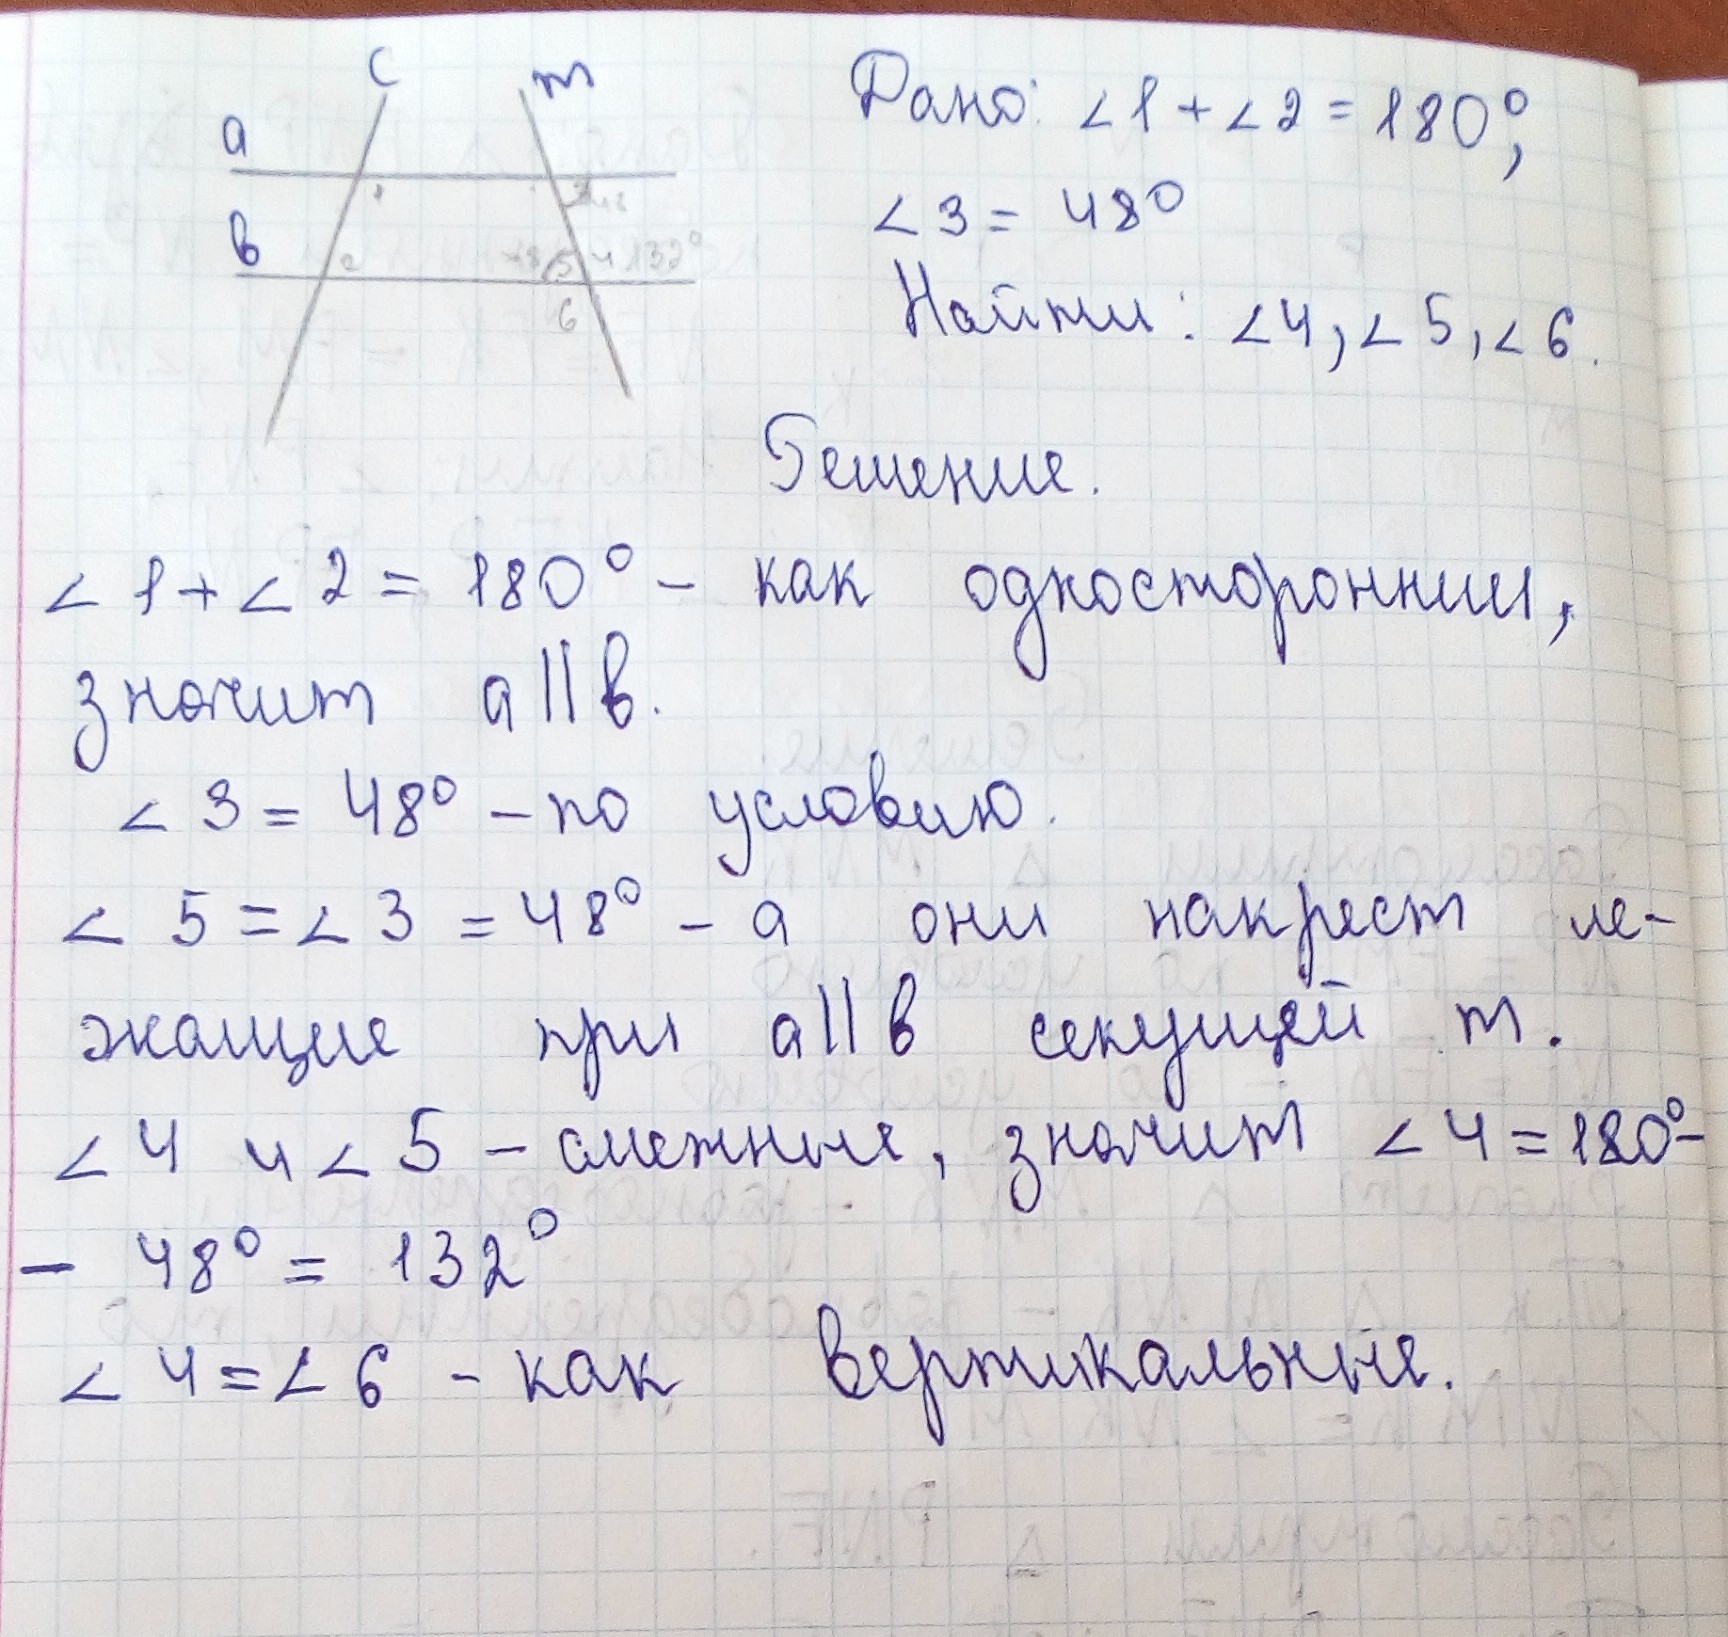 c m
a
1 3 48
b
2 48 5 4 132°
6
Дано: ∠1+∠2=180°;
∠3= 48°
Найти: ∠4,∠5,∠6.
Решение.
∠1+∠2=180°- как односторонние,
значит a||b.
∠3=48° -по условию.
∠5=∠3=48° - а они накрест ле-
жащие при a||b секущей m.
∠4 и ∠5 - смежные, значит ∠4=180°-
- 48°= 132°
∠4=∠6 - как вертикальные.